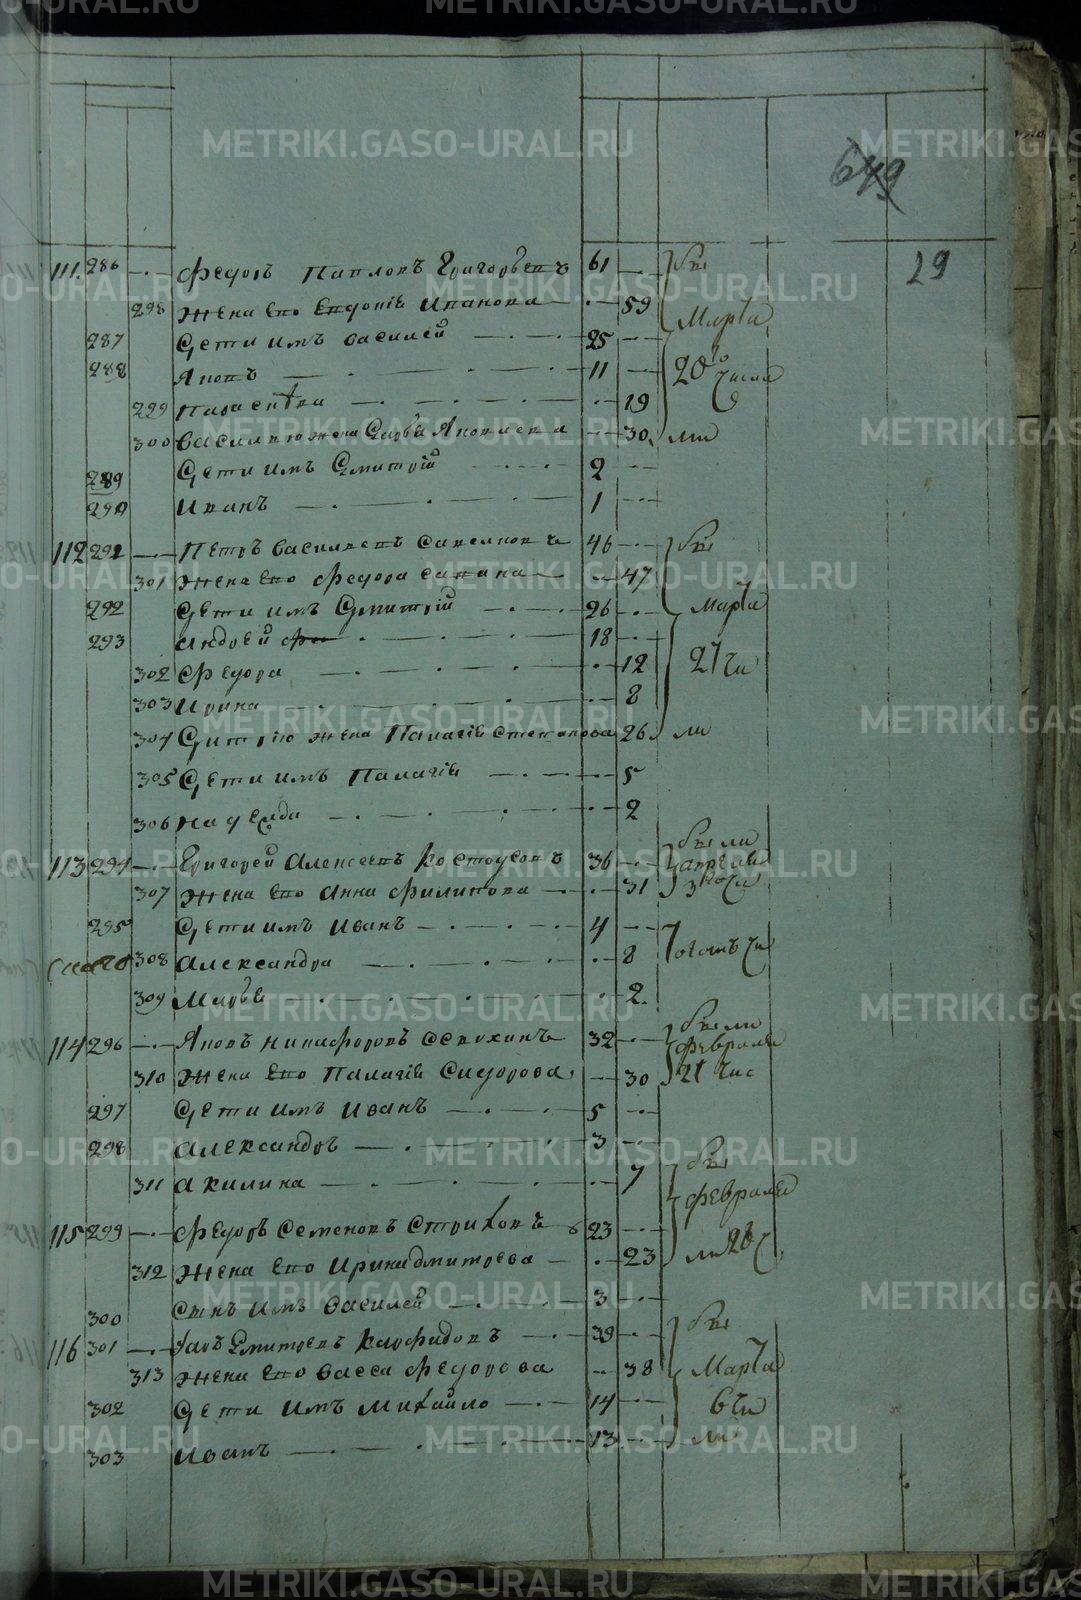 649
29
111. 286 Федоръ Павловъ Григорьевъ 61 бы
298 Жена Его Евдокія Иванова 59 Марта
287 Дети имъ Василей 25
288 Яковъ 11 20го числа
299 Параскева 19
300 Василью жена Дарья Яковлева 30 ли
289 Дети имъ Дмитрій 2
290 Иванъ 1
112 291 Петръ Васильевъ 46 бы
301 Жена Его Федора Савина 47
292 Дети имъ Дмитрій 26 Марта
293 Андрей 18
302 Федора 12 27 чи
303 Ирина 8
304 Дмитрію жена Палагія Степанова 26 ли
305 Дети имъ Палагія 5
306 2
113 294 Григорей Алексеевъ Костоусовъ 36 были апреля
307 Жена Его Анна Филипова 31 3
295 Дети имъ Иванъ 4
308 Александра 8
309 Марья 2
114 296 Яковъ Никифоровъ 32 были февраля
310 Жена Его Палагія Сидорова 30 21 чис
297 Дети имъ Иванъ 5
298 Александръ 3 бы
311 Акилина 7 февраля
115 299 Федоръ Семеновъ Стриховъ 23
312 Жена Его Ирина Дмитрева 23 ли 28
300 Сынъ имъ Василей 3
116 301 Дмитревъ 39 бы
313 Жена Его Васса Федорова 38 Марта
302 Дети имъ Михайло 14 6 чи
303 Иванъ 13 ли
METRIKI.GASO-URAL.RU